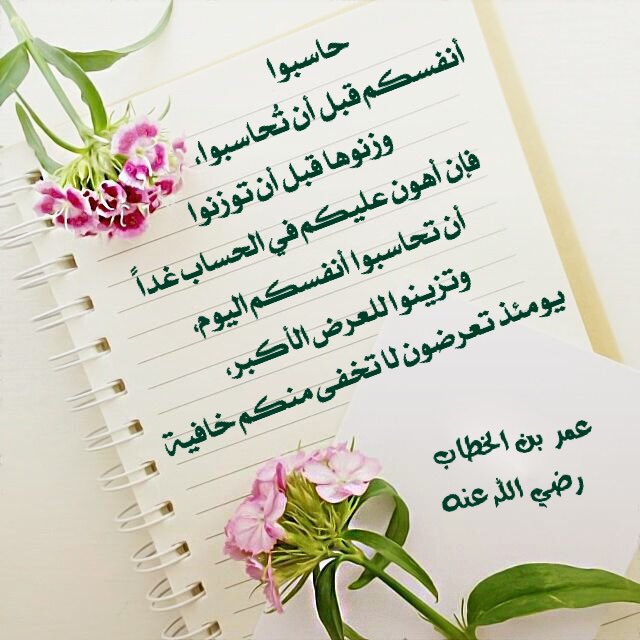 حاسبوا
أنفسكم قبل أن تُحاسبوا،
وزنوها قبل أن توزنوا
فإن أهون عليكم في الحساب غداً
أن تحاسبوا أنفسكم اليوم،
وتزينوا للعرض الأكبر،
يومئذ تعرضون لا تخفى منكم خافية
عمر بن الخطاب
رضي الله عنه